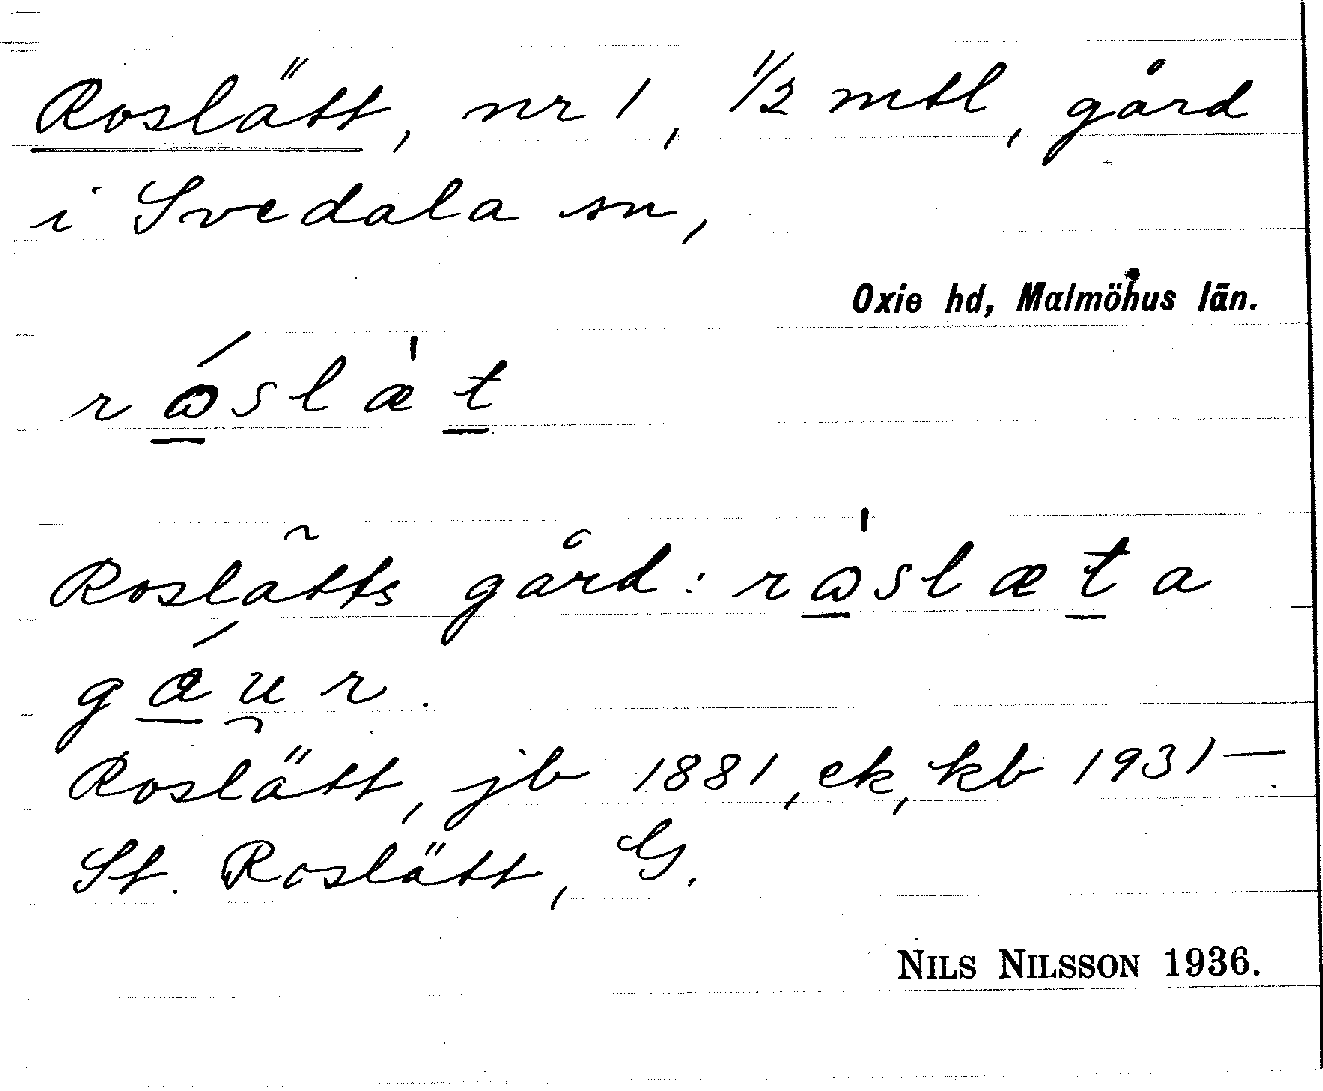 Roslätt, nr 1, 1/2 mtl, gård
i Svedala sn,
Oxie hd, Malmöhus län.
rɷ́slæ̍t
Roslätts gård: rɷ̍slæta
gáu̯r.
Roslätt, jb 1881, ek, kb 1931—
St. Roslätt, G.
NILS NILSSON 1936.